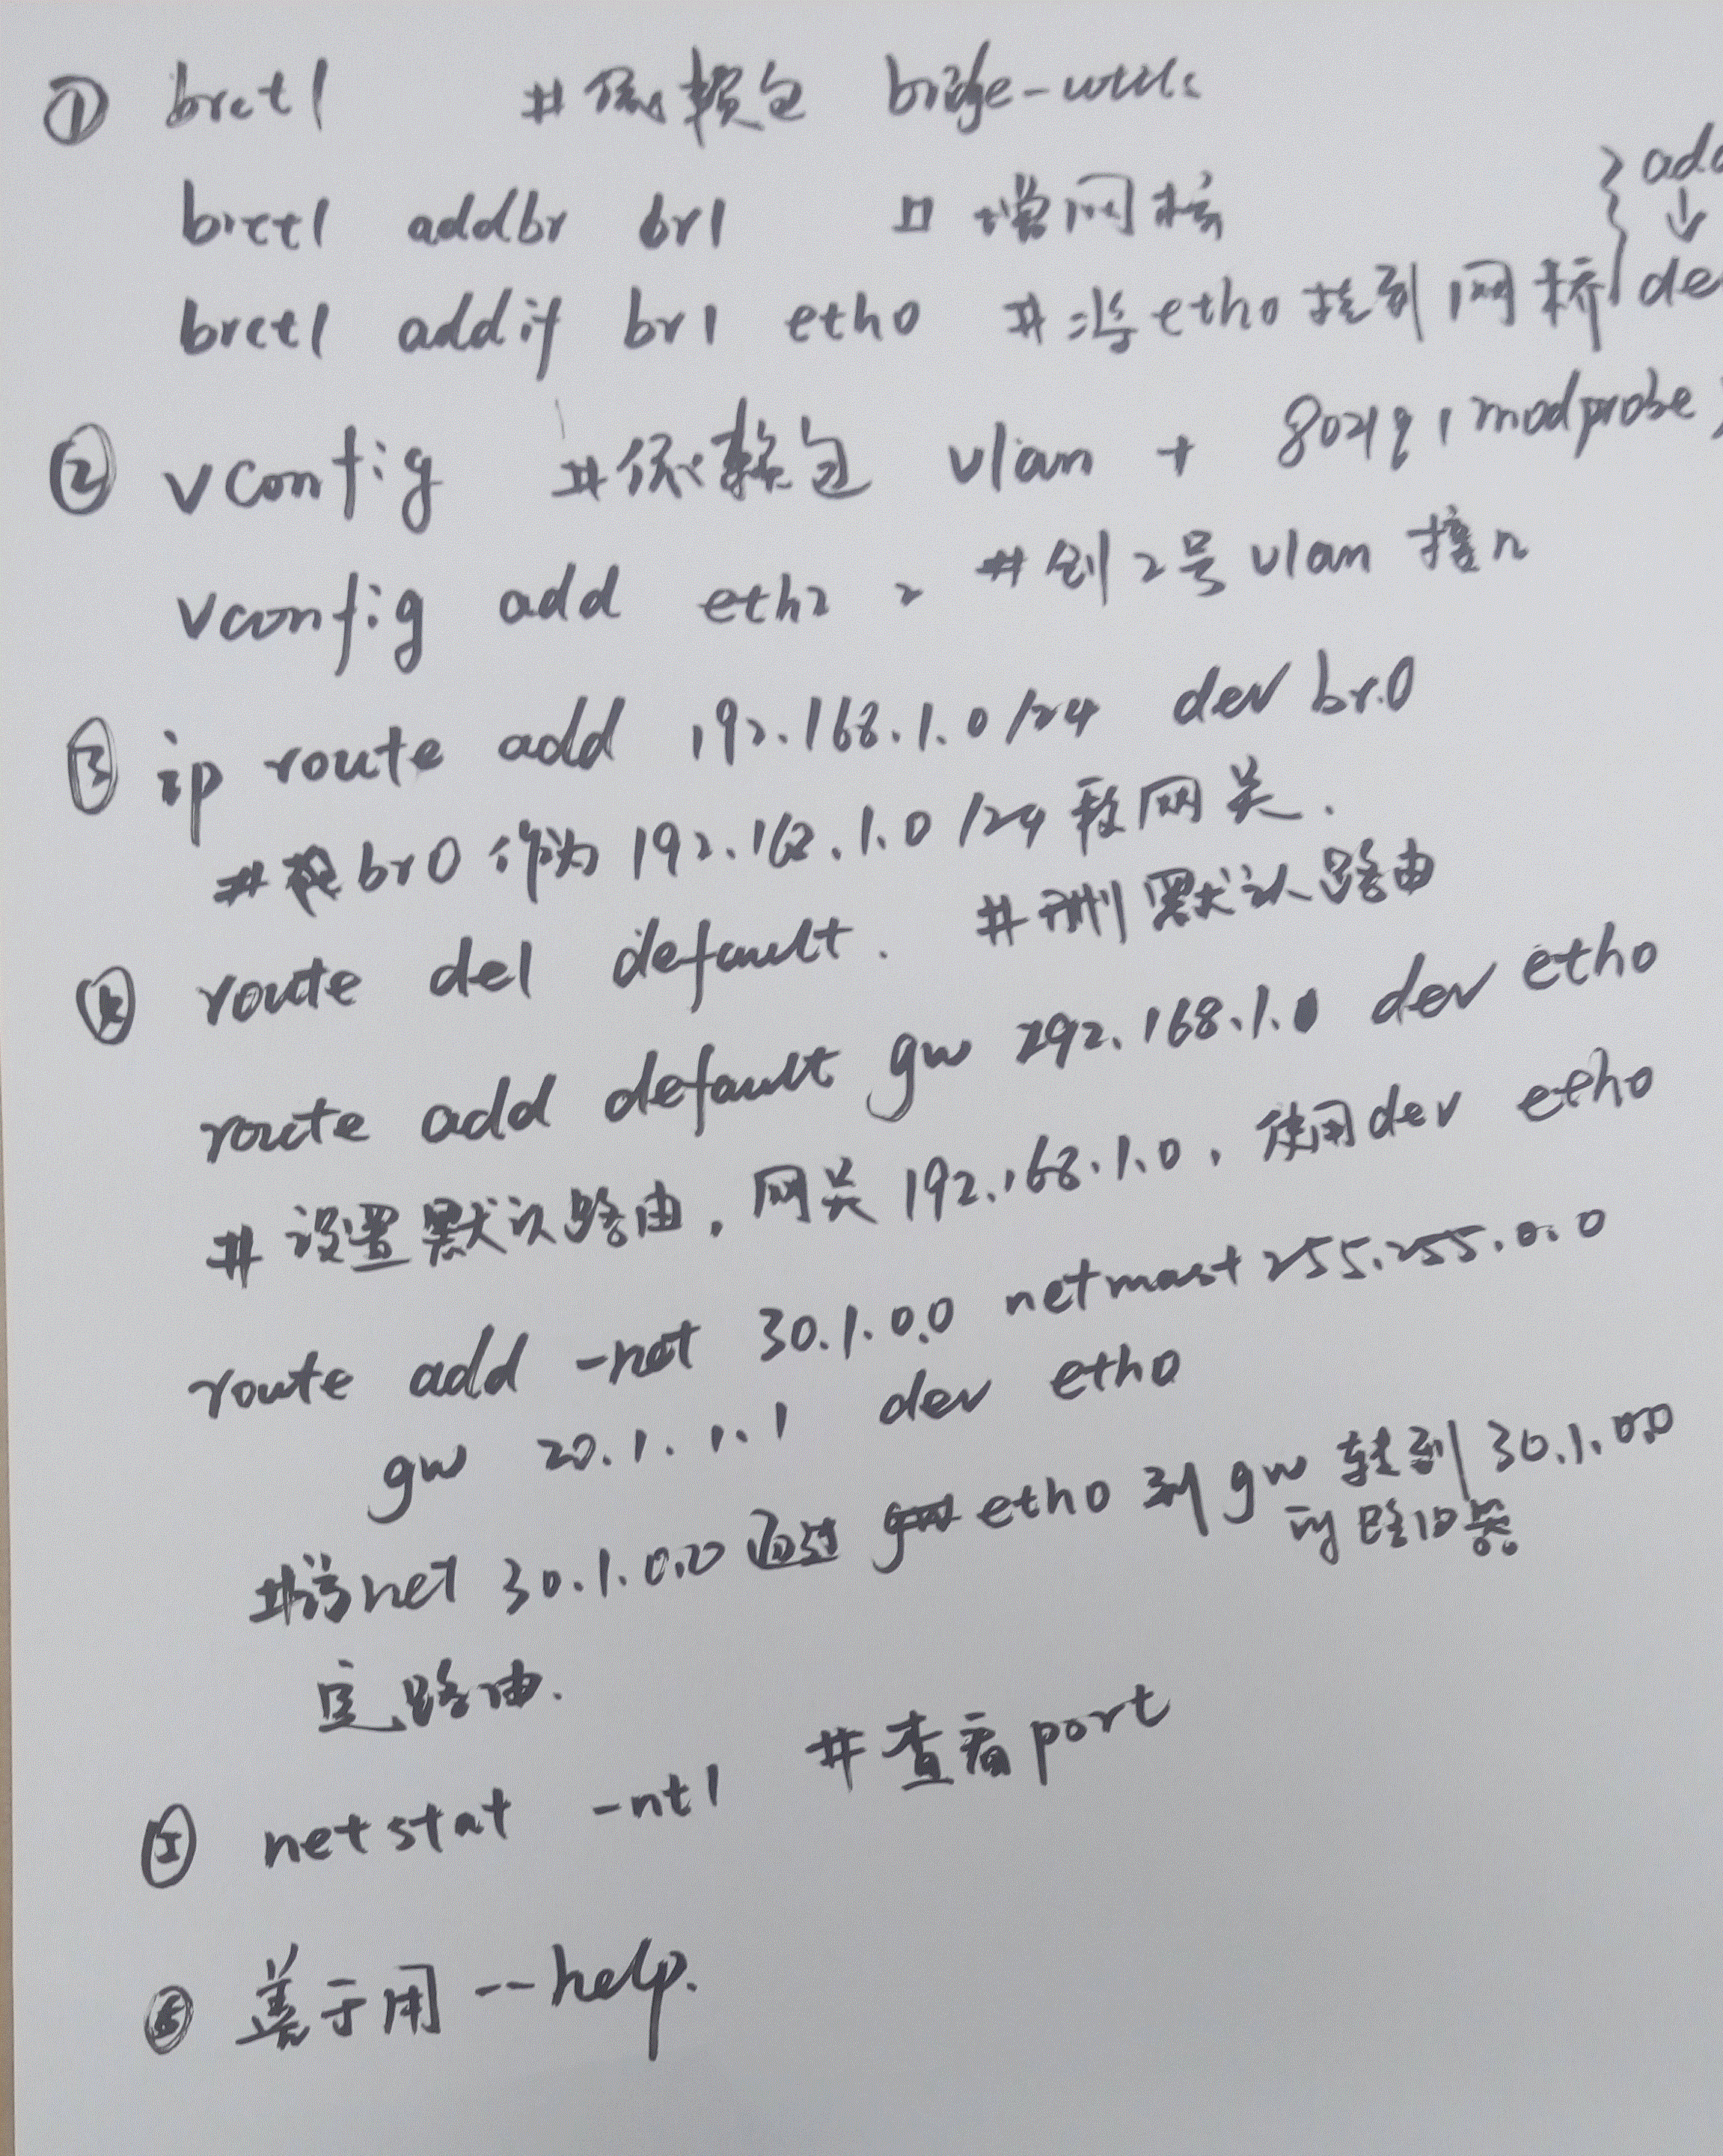 ① brctl #依赖包 bridge-utils
brctl addbr br1 # 增网桥
brctl addif br1 eth0 #将eth0接到网桥
② vconfig #依赖包 vlan + 8021q, modprobe
vconfig add eth2 2 #创2号vlan接口
③ ip route add 192.168.1.0/24 dev br0
#把br0作为192.168.1.0/24段网关.
④ route del default. #删默认路由
route add default gw 192.168.1.0 dev eth0
#设置默认路由,网关192.168.1.0,使用dev eth0
route add -net 30.1.0.0 netmast 255.255.0.0
gw 20.1.1.1 dev eth0
#将net 30.1.0.0通过 eth0到gw 转到30.1.0.0
定路由.
⑤ netstat -ntl #查看port
⑥ 善于用 --help.